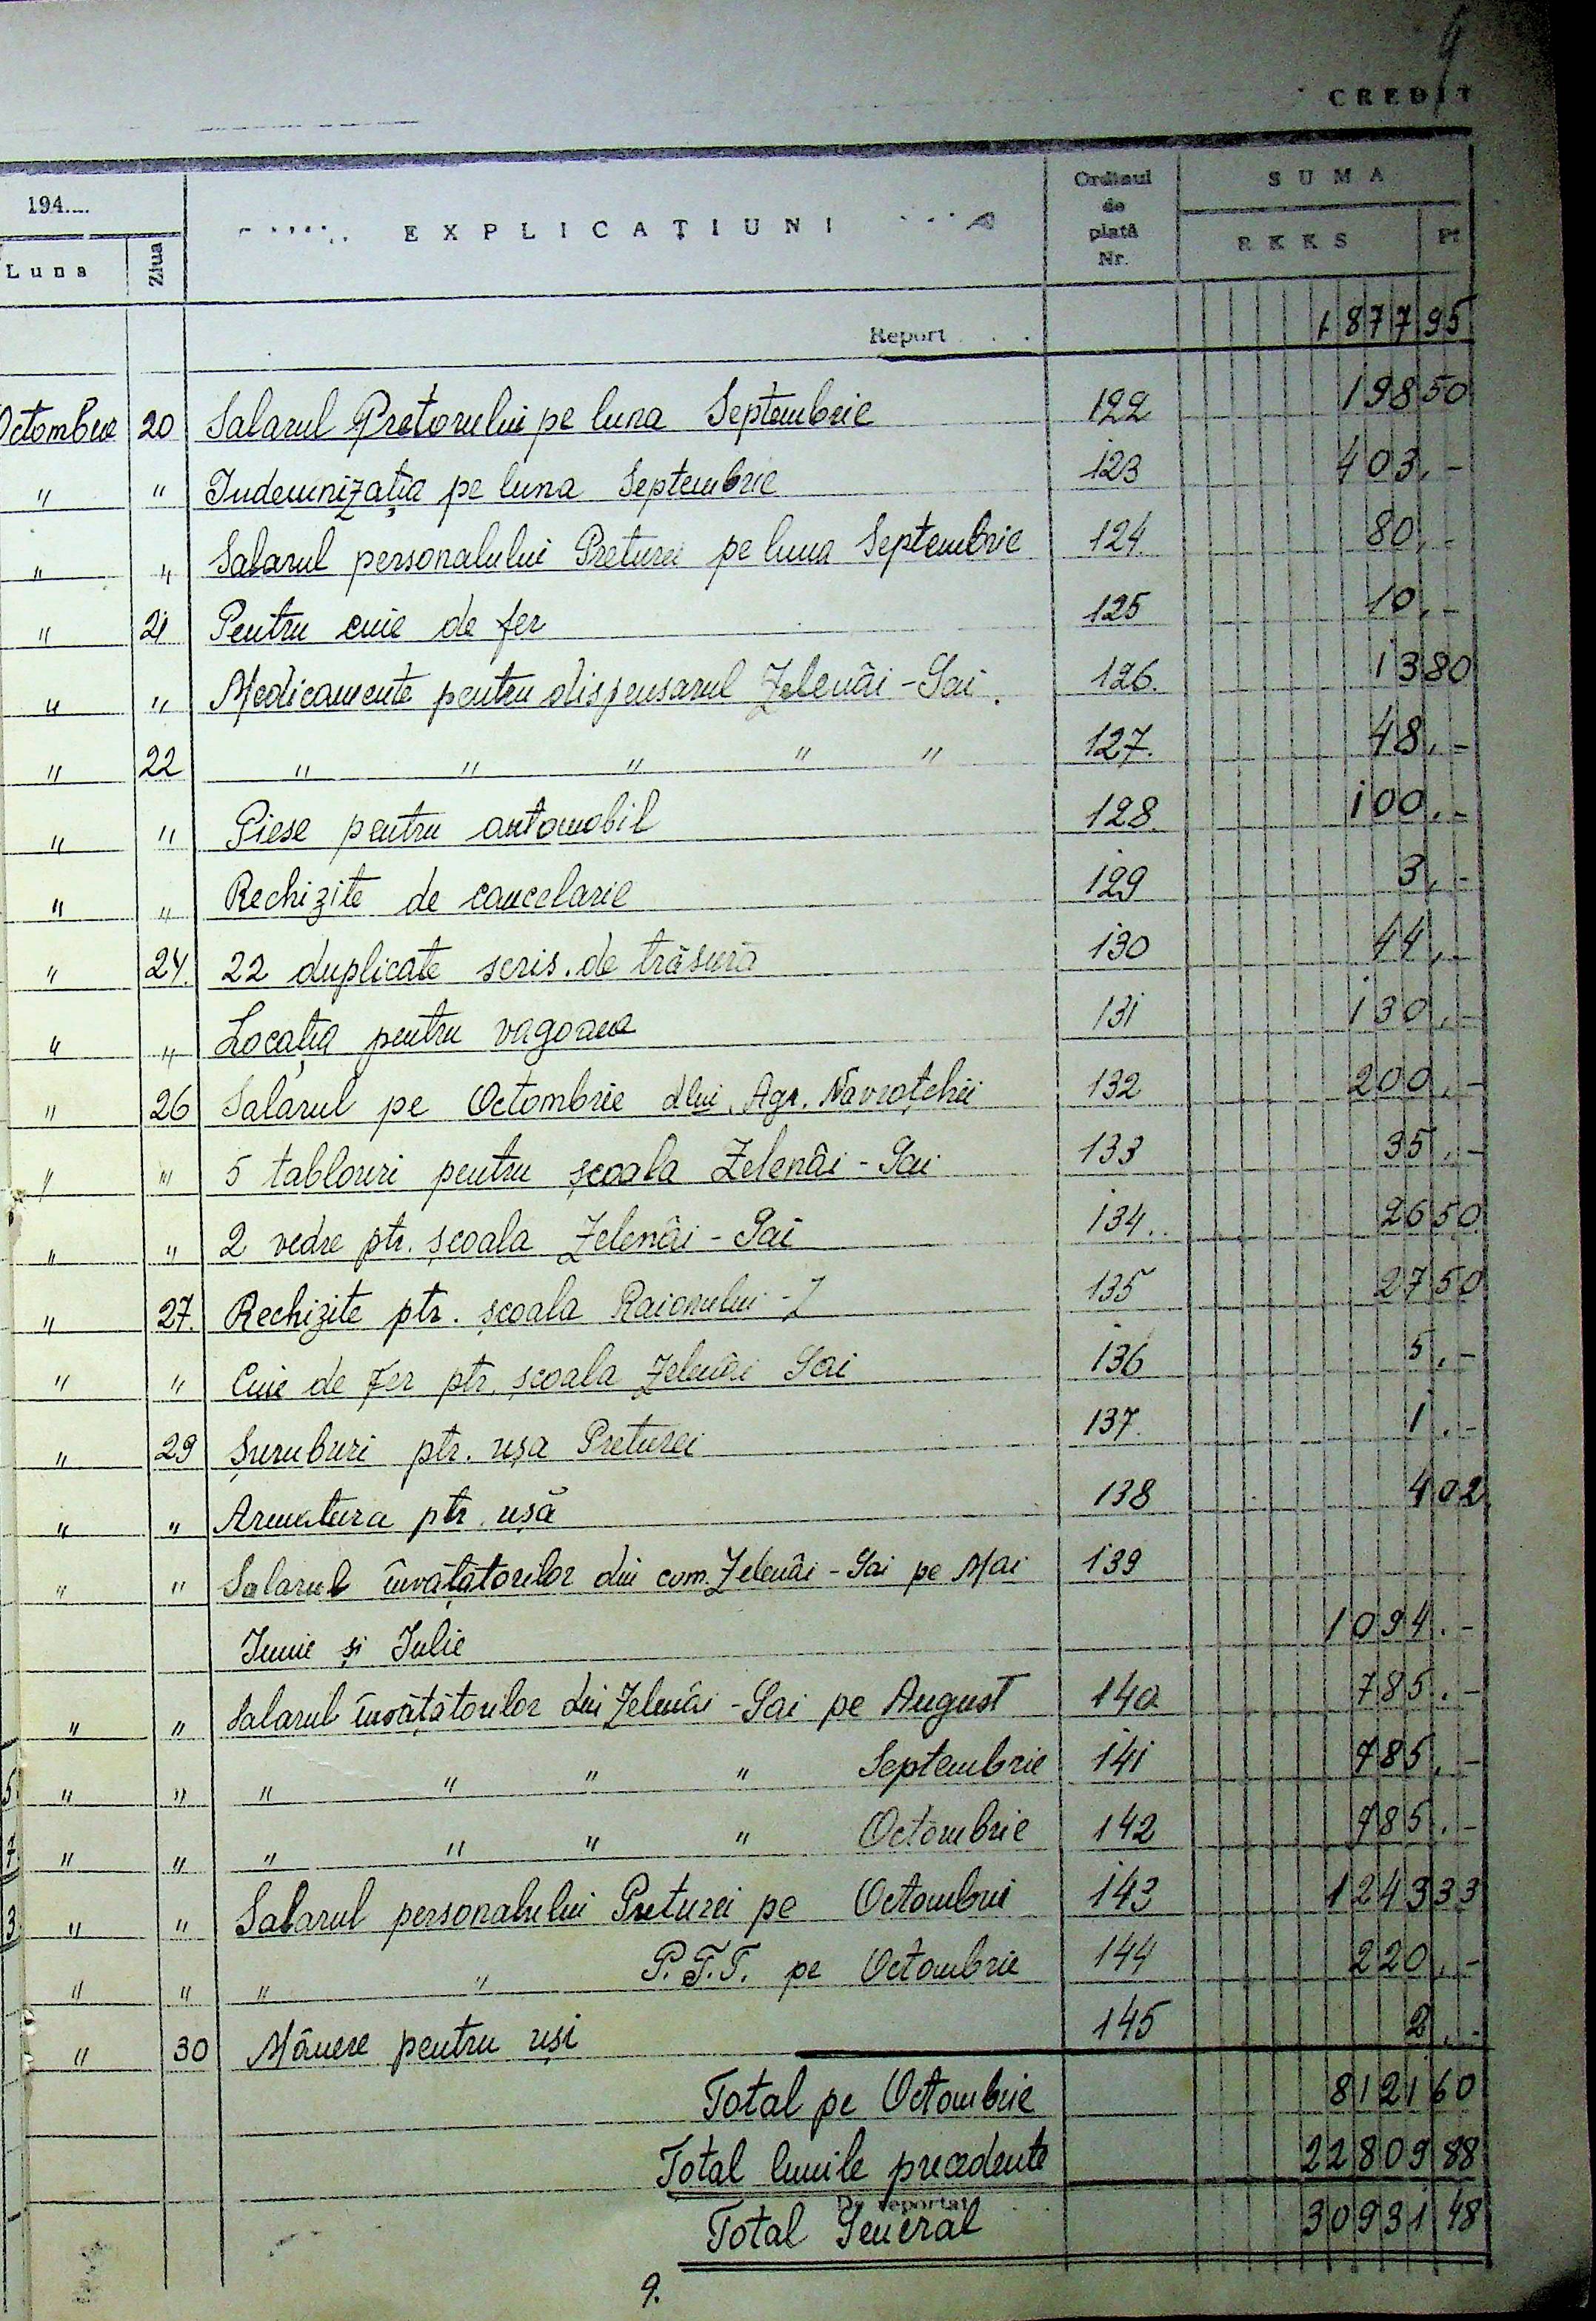 9
CREDIT
194....
Luna
Ziua
EXPLICAȚIUNI
Ordinul de plată Nr.
SUMA
RKKS
Pf
Report . . . 1877 95
Octombrie 20 Salarul Pretorului pe luna Septembrie 122 198 50
" " Indemnizația pe luna Septembrie 123 403,-
" " Salarul personalului Preturei pe luna Septembrie 124 80,-
" 21 Pentru cuie de fer 125 10,-
" " Medicamente pentru dispensarul Zelenâi-Gai. 126. 13 80
" 22 " " " " " 127. 48,-
" " Piese pentru automobil 128. 100,-
" " Rechizite de cancelarie 129 3,-
" 24. 22 duplicate scris. de trăsură 130 44,-
" " Locația pentru vagoane 131 130,-
" 26 Salarul pe Octombrie dlui Agr. Navroțchii 132 200,-
" " 5 tablouri pentru școala Zelenâi-Gai 133 35,-
" " 2 vedre ptr. școala Zelenâi-Gai 134.. 26 50
" 27. Rechizite ptr. școala Raionului-Z 135 27 50
" " Cuie de fer ptr. școala Zelenâi Gai 136 5,-
" 29 Șuruburi ptr. ușa Preturei 137. 1.-
" " Armatura ptr. ușă 138 4 02
" " Salarul învățătorilor din com. Zelenâi-Gai pe Mai 139
Iunie și Iulie 1094.-
" " Salarul învățătorilor din Zelenâi-Gai pe August 140 785.-
5. " " " " " " Septembrie 141 785.-
7. " " " " " " Octombrie 142 785.-
3. " " Salarul personalului Preturei pe Octombrie 143 1243 33
" " " " P.T.T. pe Octombrie 144 220,-
" 30 Mânere pentru uși 145 2,-
Total pe Octombrie 8121 60
Total lunile precedente 22809 88
De reportat
Total General 30931 48
9.